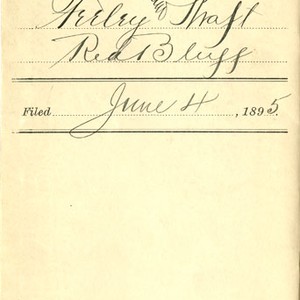 Feeley & Thaft
Red Bluff
Filed June 4, 1895.